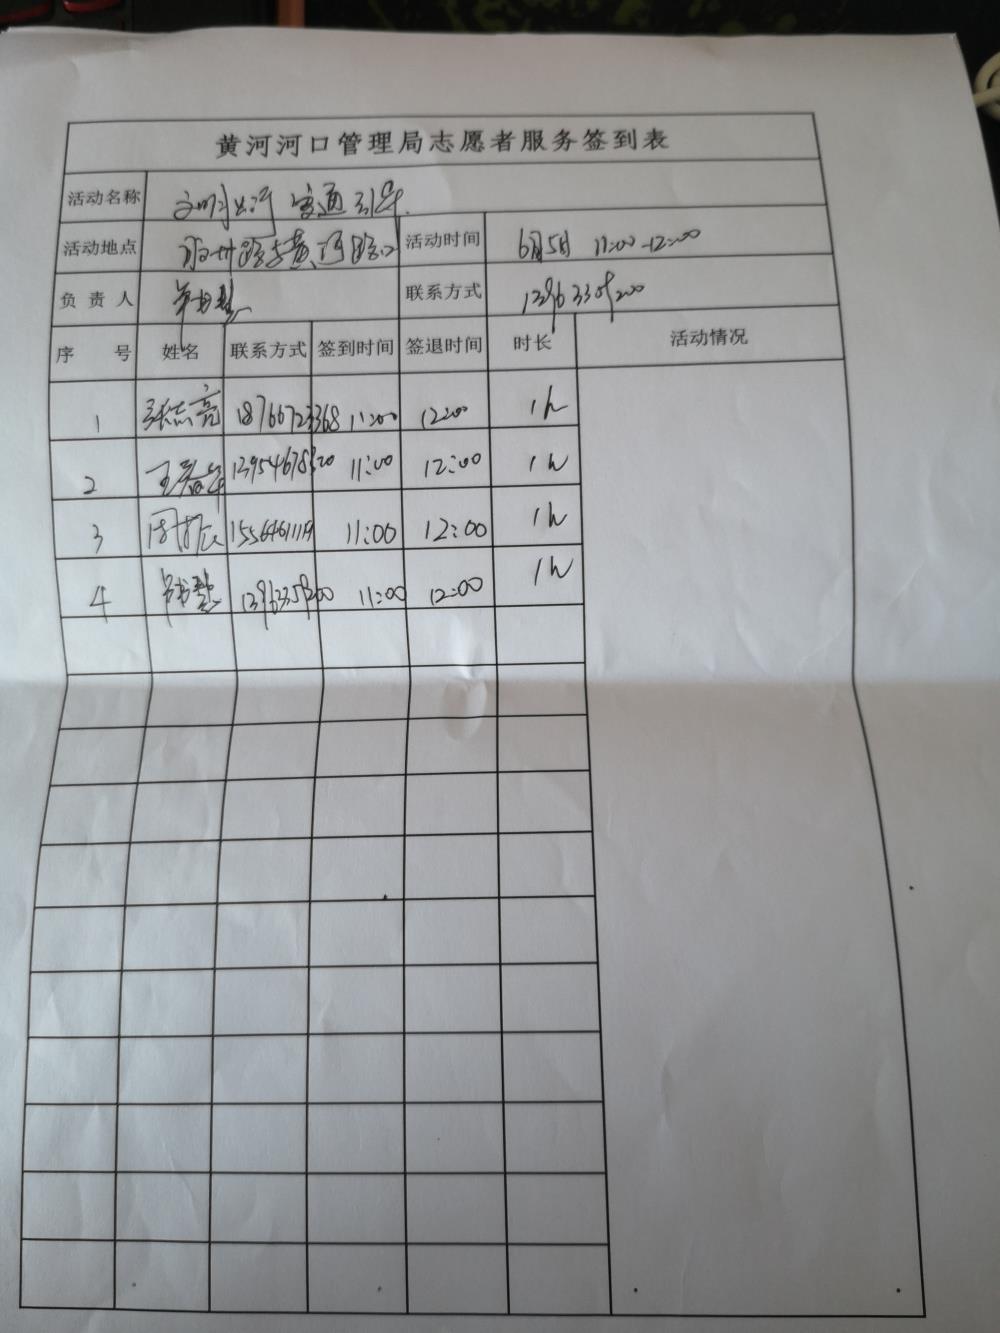 黄河河口管理局志愿者服务签到表
活动名称 文明出行 交通引导
活动地点 路与黄河路口 活动时间 6月5日 11:00-12:00
负责人 联系方式
序号 姓名 联系方式 签到时间 签退时间 时长 活动情况
1 张志亮 18766723368 11:00 12:00 1h
2 王春华 11:00 12:00 1h
3 周 15564611119 11:00 12:00 1h
4 11:00 12:00 1h